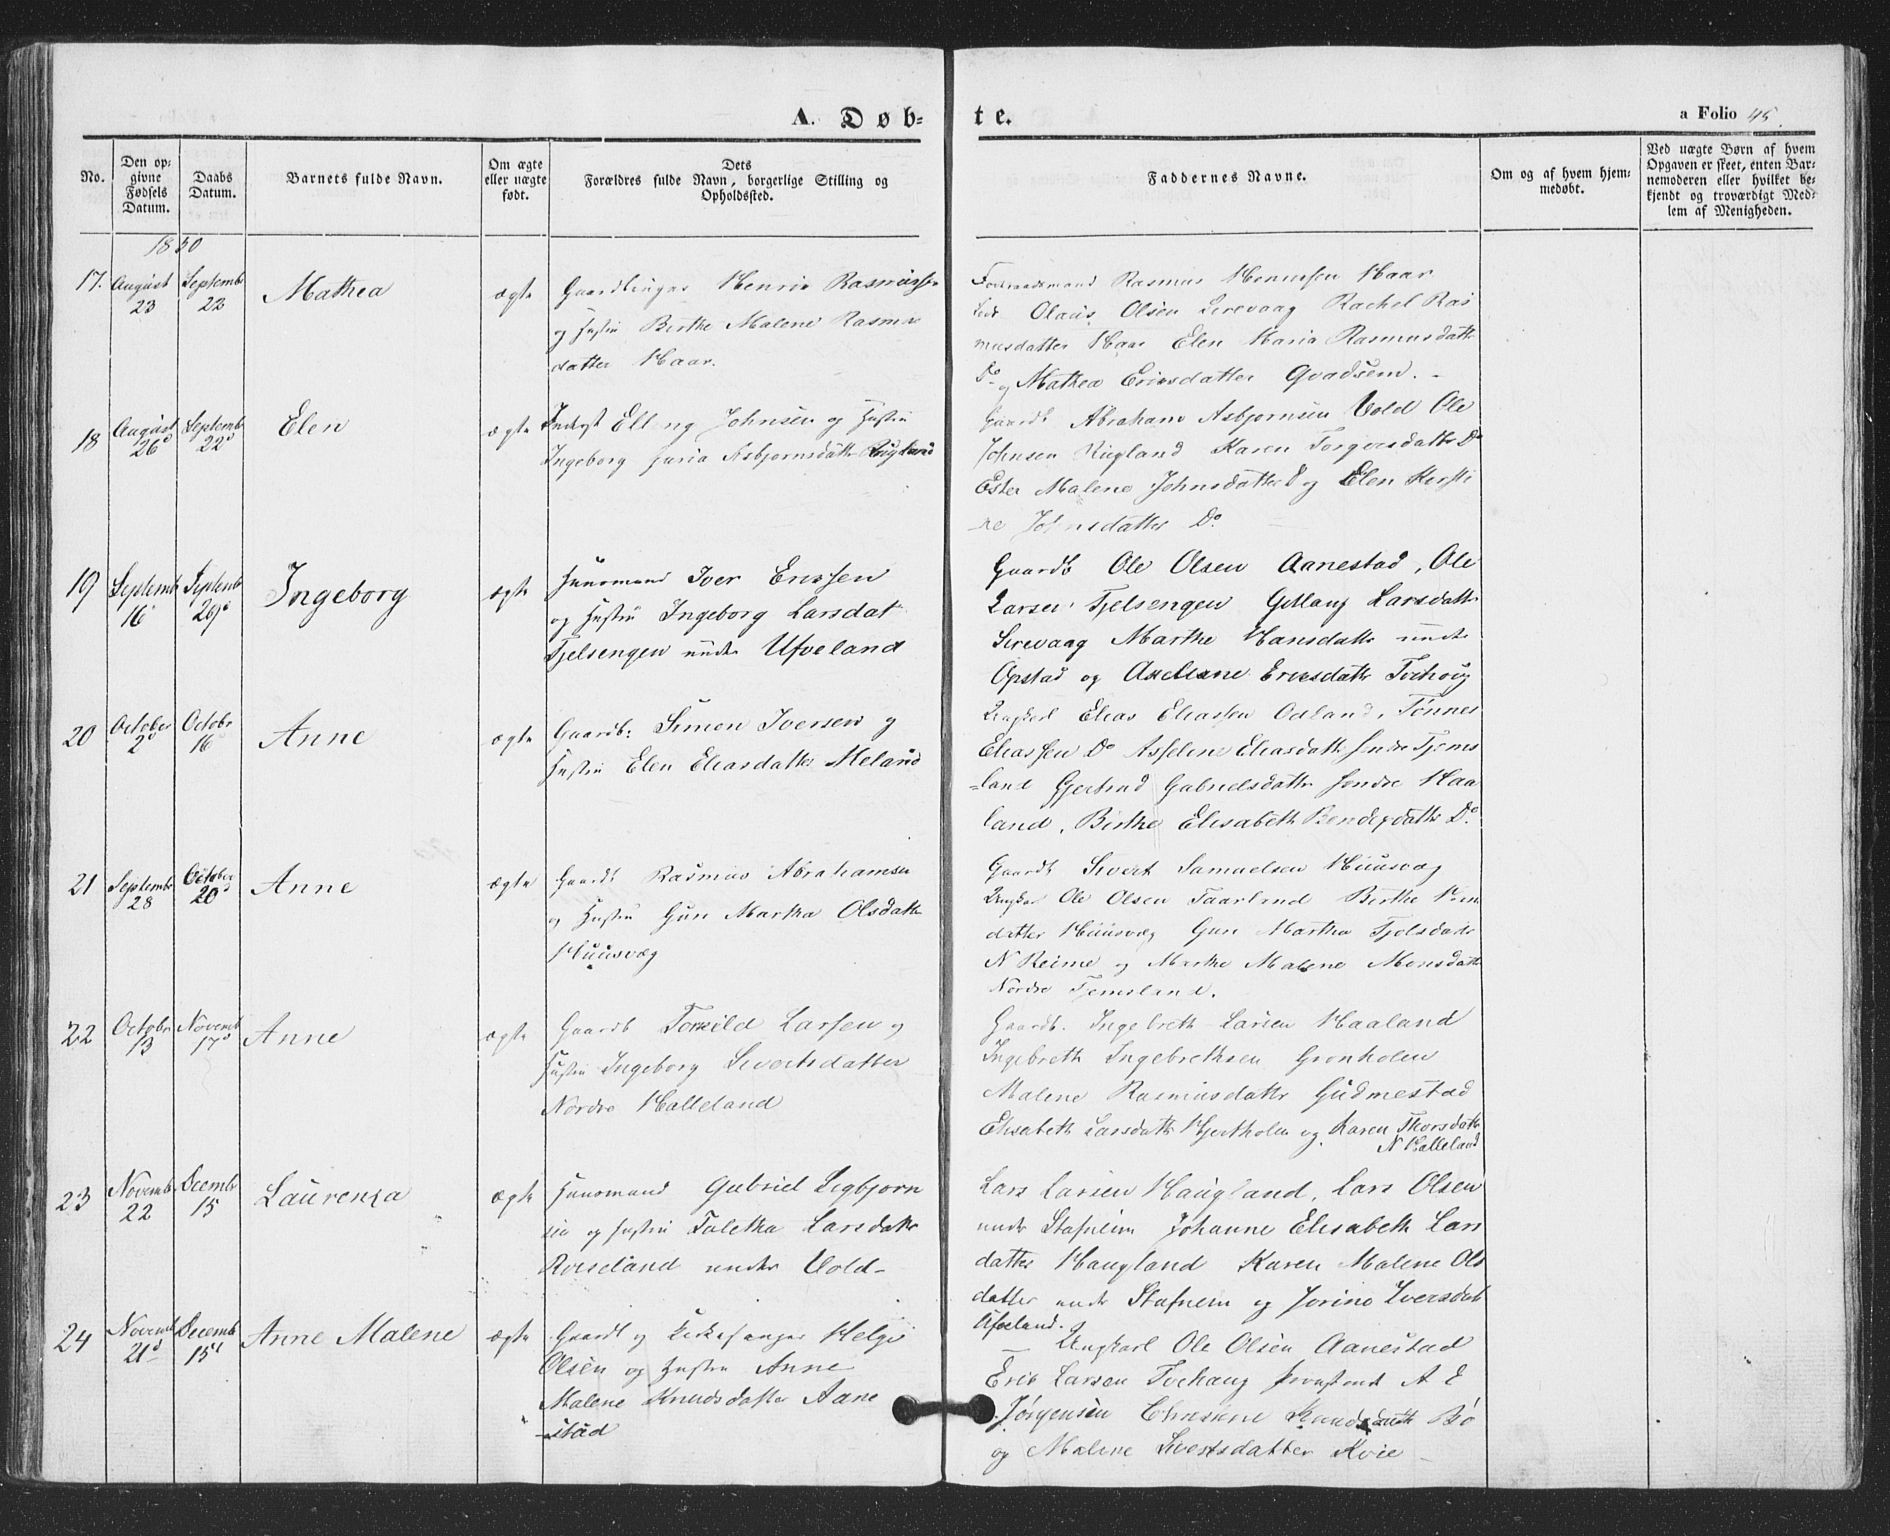 A. Døb-
te.
a Folio 45.
No.
Den op-
givne
Fødsels
Datum.
Daabs
Datum.
Barnets fulde Navn.
Om ægte
eller uægte
født.
Dets
Forældres fulde Navn, borgerlige Stilling og
Opholdssted.
Faddernes Navne.
Om og af hvem hjem-
medøbt.
Ved uægte Børn af hvem
Opgaven er skeet, enten Bar-
nemoderen eller hvilket be-
kjendt og troværdigt Med-
lem af Menigheden.
1850
17. August 23 Septembr 22 Mathea ægte
Henrik Rasmussen
og Hustru Birthe Malene Rasmus
datter Haar.
Rasmus Haar
Olaus Olsen Sirevaag Rachel Ras
musdatter Haar Elen Maria Rasmusdattr
Do og Mathea Ericsdatter Qvadsem.
18 August 26 Septembr 22 Elen ægte
Elling Johnsen og Hustru
Ingeborg Maria Asbjørnsdattr Rugland
Gaardb Abraham Asbjørnsen Vold Ole
Johnsen Rugland Karen Torgersdattr Do
Ester Malene Johnsdatter Do og Elen Kirsti
ne Johnsdatter Do
19 Septembr 16 Septembr 29 Ingeborg ægte
Huusmand Iver Ericssen
og Hustru Ingeborg Larsdat
Tjelsengen under Ufveland
Gaardb Ole Olsen Aanestad, Ole
Larsen Tjelsengen Larsdattr
Sirevaag Marthe Hansdattr under
Opstad og Axeliane Ericsdattr Tvihoug
20 October 2 Octobr 16 Anne ægte
Gaardb: Simon Iversen og
Hustru Elen Eliasdatter Meland
Ungkarl Elias Eliassen Odland, Tønnes
Eliassen Do Asseline Eliasdattr søndre Tjems
land Gjertrud Gabrielsdattr søndre Haa
land, Birthe Elisabeth Do
21 Septembr 28 October 20 Anne ægte
Gaardb Rasmus Abrahamsen
og Hustru Gun Martha Olsdattr
Huusvæg
Gaardb Sivert Samuelsen Huusvæg
Ungkar Ole Olsen Taarland Birthe
datter Huusvæg Gun Martha Tjelsdattr
N Reime og Marthe Malene Monsdattr
Nordre Tjemsland.
22 Octobr 13 Novembr 17 Anne ægte
Gaardb Torkild Larsen og
Hustru Ingeborg Sivertsdatter
Nordre Halleland
Gaardb. Ingebreth Larsen Haaland
Ingebreth Ingebrethsen Grønholen
Malene Rasmusdattr Gudmestad
Elisabeth Larsdattr Hjertholen og Karen Thorsdattr
N Halleland
23 Novembr 22 Decembr 15 Laurenza ægte
Huusmand Gabriel Sigbjørn
sen og Hustru Taletha Larsdattr
Roiseland under Vold
Lars Larsen Haugland, Lars Olsen
under Stafneim Johanne Elisabeth Lars
datter Haugland Karen Malene Ols
datter under Stafneim og Jorine Iversdatt
Ufveland.
24 Novembr 21 Decembr 15 Anne Malene ægte
Gaardb og Kirkesanger Helge
Olsen og Hustru Anne
Malene Knudsdatter Aane
stad
Ungkarl Ole Olsen Aanestad
Eric Larsen Tvihaug A E
Jørgensen Christine Knudsdatt Bø
og Malene Sivertsdatter Kvie